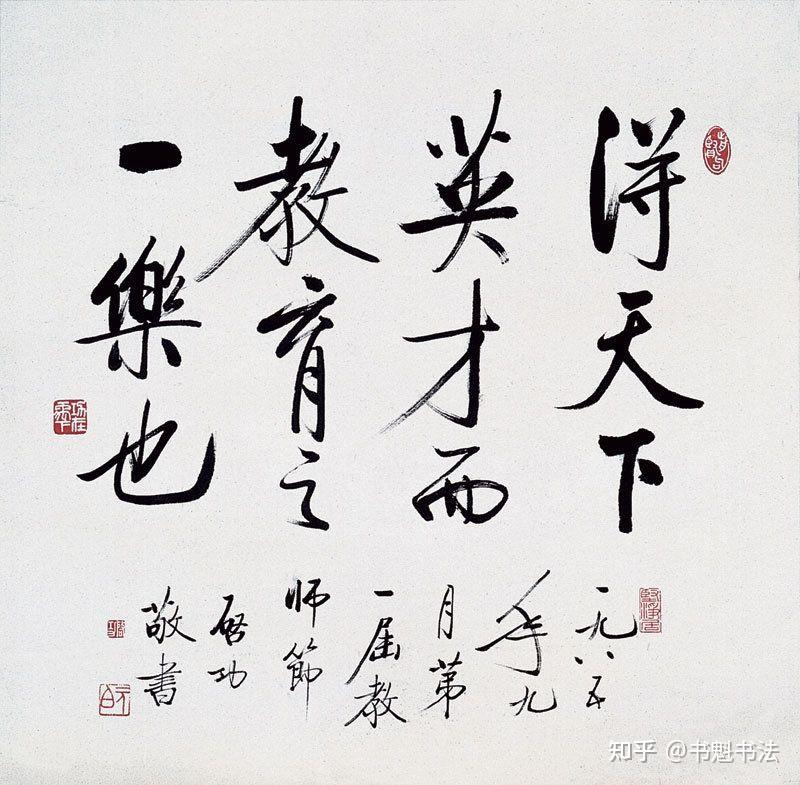 得天下
英才而
教育之
一樂也
一九八五
年九
月第
一届教
师節
啟功
敬書
知乎 @书魁书法